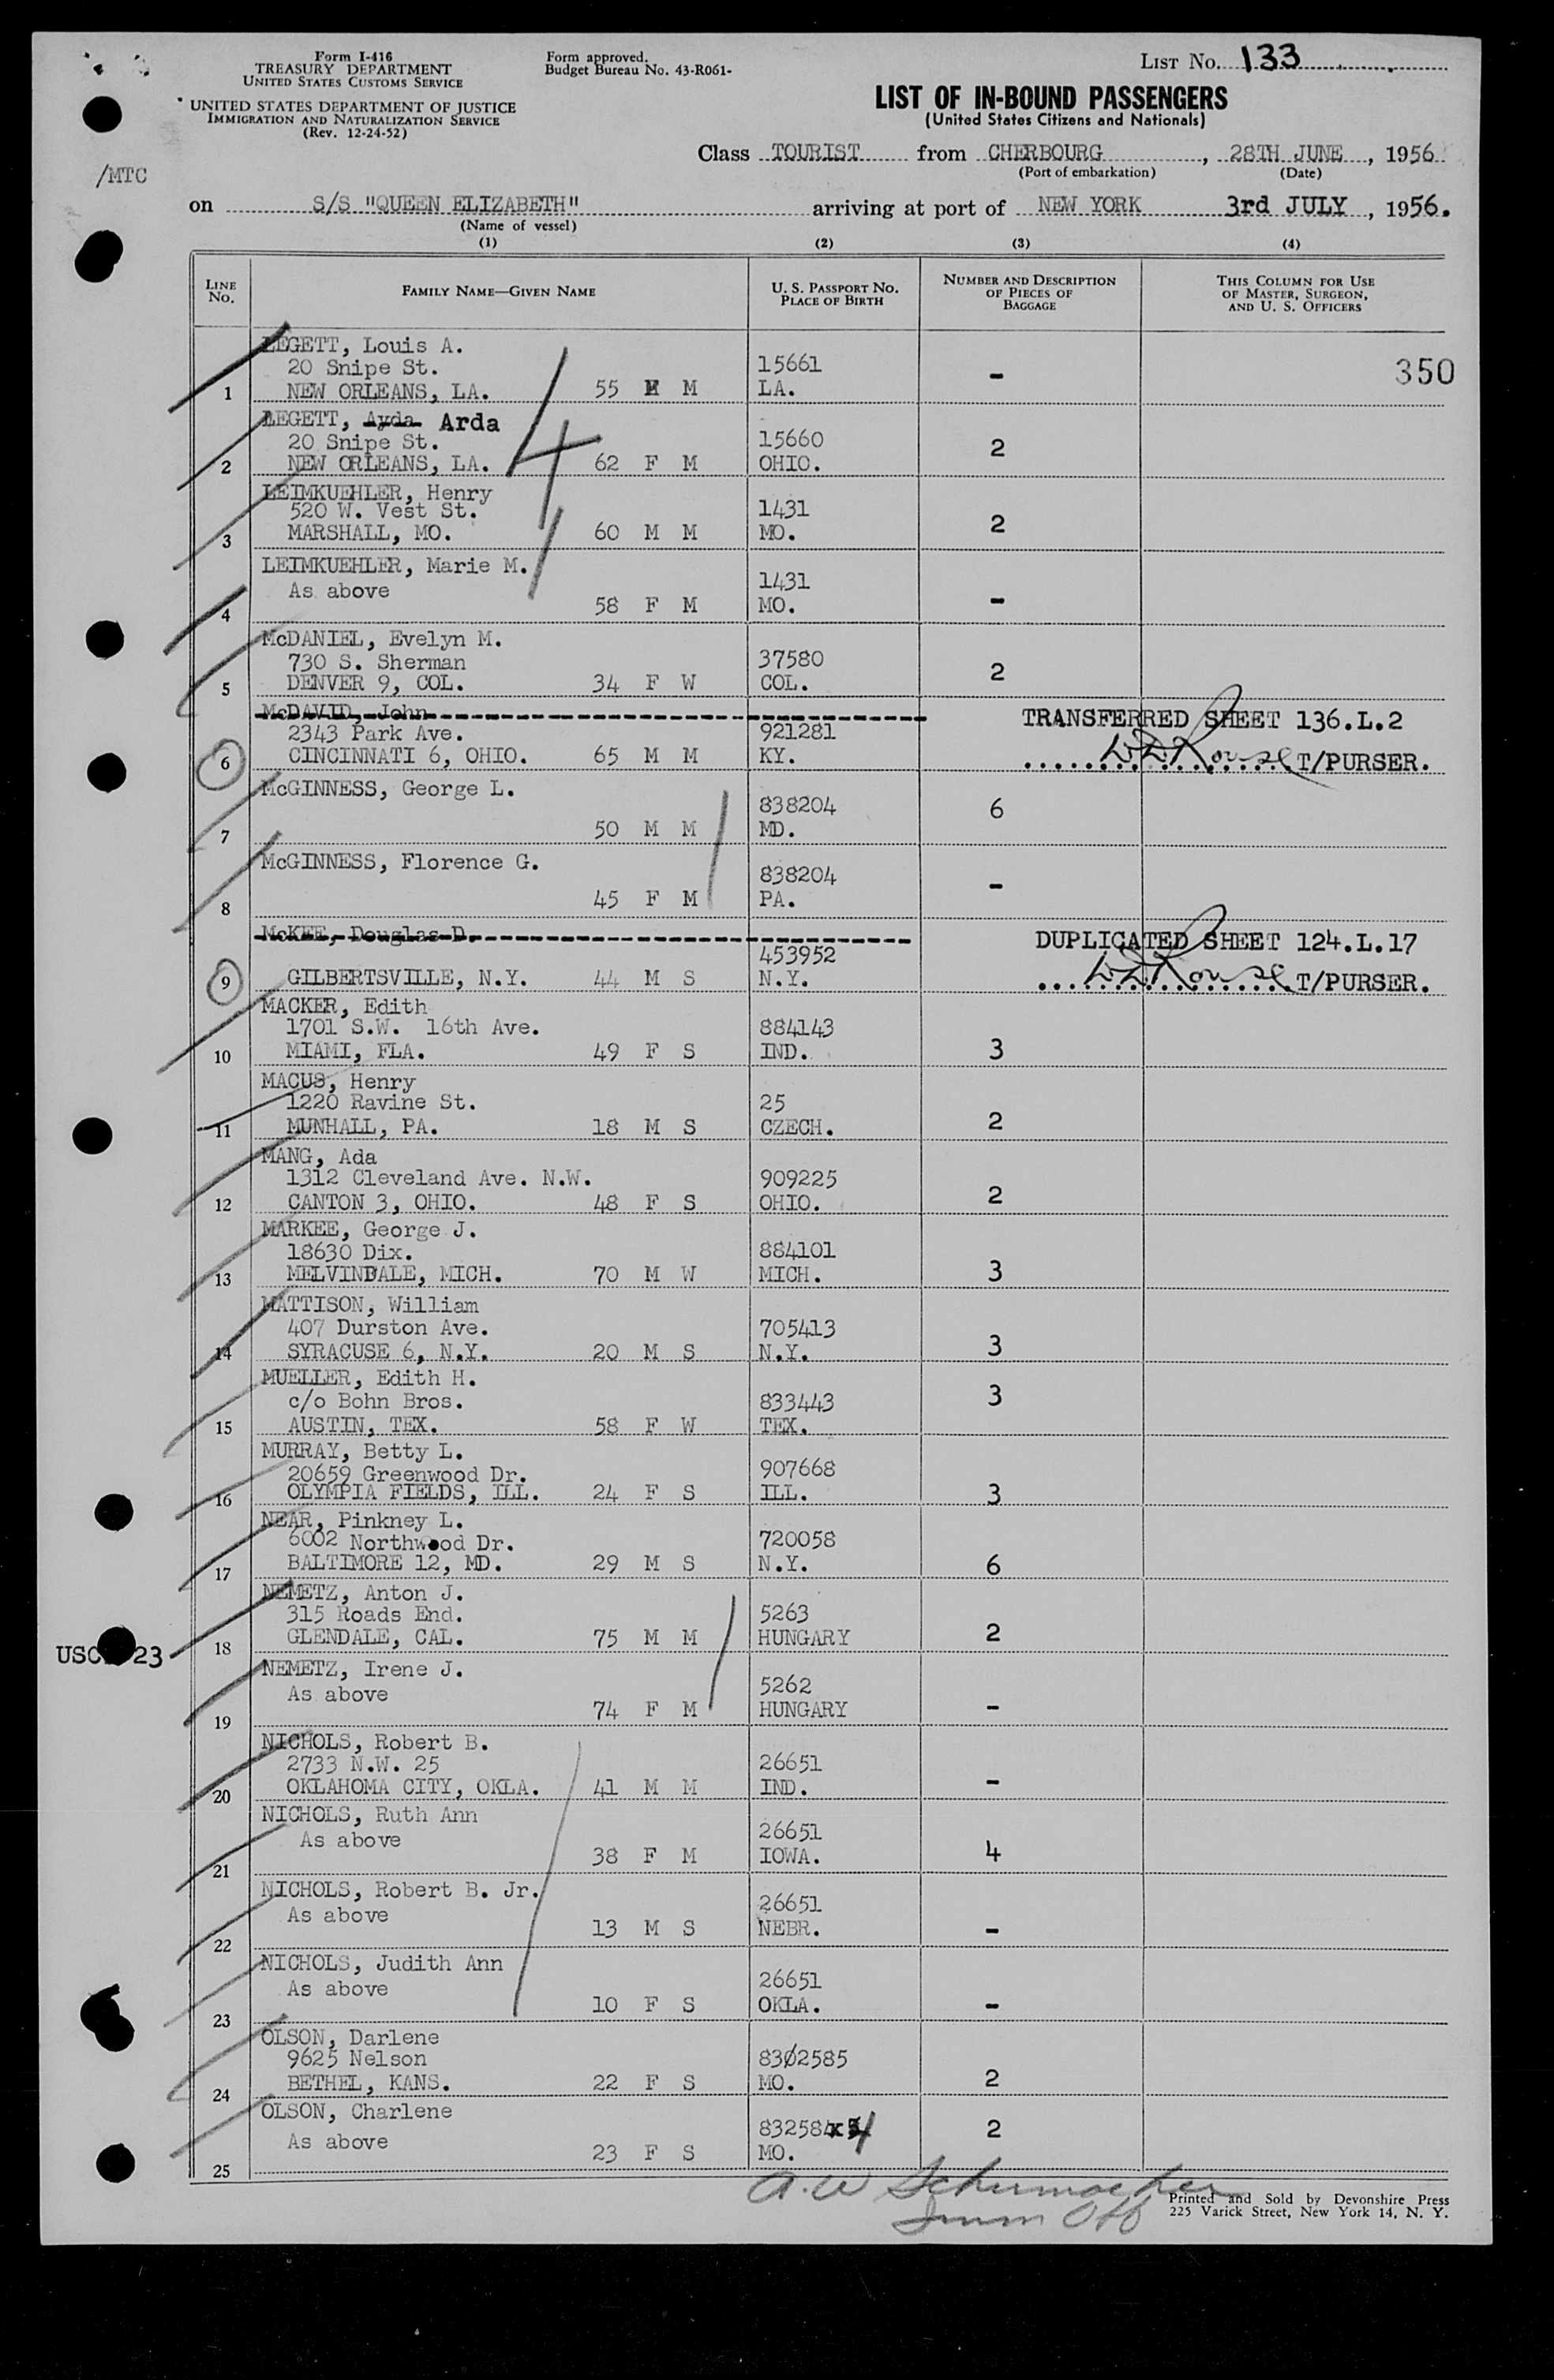 Form I-416
TREASURY DEPARTMENT
UNITED STATES CUSTOMS SERVICE
UNITED STATES DEPARTMENT OF JUSTICE
IMMIGRATION AND NATURALIZATION SERVICE
(Rev. 12-24-52)
Form approved.
Budget Bureau No. 43-R061-
LIST NO. 133
LIST OF IN-BOUND PASSENGERS
(United States Citizens and Nationals)
/MTC
Class TOURIST from CHERBOURG, 28TH JUNE, 1956
(Port of embarkation) (Date)
on S/S "QUEEN ELIZABETH" arriving at port of NEW YORK 3rd JULY, 1956.
(Name of vessel)
(1) (2) (3) (4)
LINE NO. FAMILY NAME—GIVEN NAME U. S. PASSPORT NO. PLACE OF BIRTH NUMBER AND DESCRIPTION OF PIECES OF BAGGAGE THIS COLUMN FOR USE OF MASTER, SURGEON, AND U. S. OFFICERS
LEGETT, Louis A.
20 Snipe St. 15661 - 350
1 NEW ORLEANS, LA. 55 M M LA.
4
LEGETT, Ayda Arda
20 Snipe St. 15660 2
2 NEW ORLEANS, LA. 62 F M OHIO.
LEIMKUEHLER, Henry
520 W. Vest St. 1431 2
3 MARSHALL, MO. 60 M M MO.
LEIMKUEHLER, Marie M.
As above 1431 -
4 58 F M MO.
McDANIEL, Evelyn M.
730 S. Sherman 37580 2
5 DENVER 9, COL. 34 F W COL.
McDAVID, John TRANSFERRED SHEET 136.L.2
2343 Park Ave. 921281
6 CINCINNATI 6, OHIO. 65 M M KY. T/PURSER.
McGINNESS, George L.
838204 6
7 50 M M MD.
McGINNESS, Florence G.
838204 -
8 45 F M PA.
McKEE, Douglas D. DUPLICATED SHEET 124.L.17
453952
9 GILBERTSVILLE, N.Y. 44 M S N.Y. T/PURSER.
MACKER, Edith
1701 S.W. 16th Ave. 884143
10 MIAMI, FLA. 49 F S IND. 3
MACUS, Henry
1220 Ravine St. 25
11 MUNHALL, PA. 18 M S CZECH. 2
MANG, Ada
1312 Cleveland Ave. N.W. 909225
12 CANTON 3, OHIO. 48 F S OHIO. 2
MARKEE, George J.
18630 Dix. 884101
13 MELVINDALE, MICH. 70 M W MICH. 3
MATTISON, William
407 Durston Ave. 705413
14 SYRACUSE 6, N.Y. 20 M S N.Y. 3
MUELLER, Edith H.
c/o Bohn Bros. 833443 3
15 AUSTIN, TEX. 58 F W TEX.
MURRAY, Betty L.
20659 Greenwood Dr. 907668
16 OLYMPIA FIELDS, ILL. 24 F S ILL. 3
NEAR, Pinkney L.
6002 Northwood Dr. 720058
17 BALTIMORE 12, MD. 29 M S N.Y. 6
NEMETZ, Anton J.
315 Roads End. 5263
18 GLENDALE, CAL. 75 M M HUNGARY 2
NEMETZ, Irene J.
As above 5262
19 74 F M HUNGARY -
NICHOLS, Robert B.
2733 N.W. 25 26651
20 OKLAHOMA CITY, OKLA. 41 M M IND. -
NICHOLS, Ruth Ann
As above 26651 4
21 38 F M IOWA.
NICHOLS, Robert B. Jr.
As above 26651
22 13 M S NEBR. -
NICHOLS, Judith Ann
As above 26651
23 10 F S OKLA. -
OLSON, Darlene
9625 Nelson 83∅2585
24 BETHEL, KANS. 22 F S MO. 2
OLSON, Charlene
As above 83258 4 2
25 23 F S MO.
A. W Schumacher
Imm Off
Printed and Sold by Devonshire Press
225 Varick Street, New York 14, N. Y.